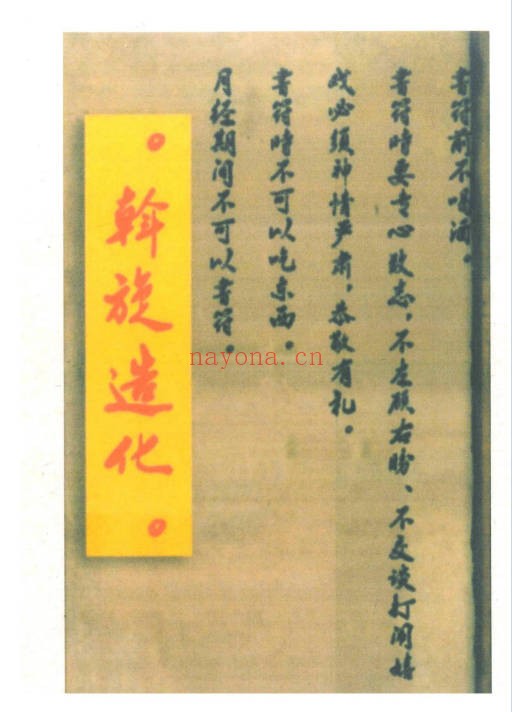 书符前不喝酒。
书符时要专心致志，不左顾右盼、不交谈打闹嬉
戏必须神情严肃，恭敬有礼。
书符时不可以吃东西。
月经期间不可以书符。
。斡旋造化。
nayona.cn